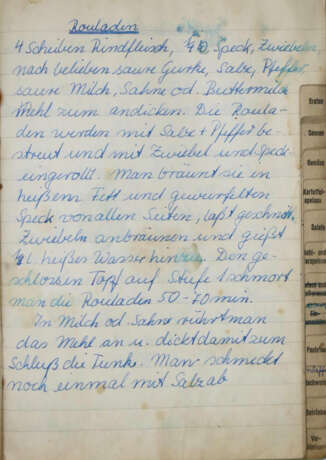 Rouladen
4 Scheiben Rindfleisch, Speck, Zwiebeln,
nach belieben saure Gurke, Salz, Pfeffer,
saure Milch, Sahne od. Buttermilch
Mehl zum andicken. Die Roula-
den werden mit Salz + Pfeffer be-
streut und mit Zwiebel und Speck
eingerollt. Man bräunt sie in
heißem Fett und gewürfelten
Speck von allen Seiten, läßt geschnitt.
Zwiebeln anbräunen und gießt
heißes Wasser hinzu. Den ge-
schlossen Topf auf Stufe 1 schmort
man die Rouladen 50-70 min.
In Milch od. Sahne rührt man
das Mehl an u. dickt damit zum
Schluß die Tunke. Man schmeckt
noch einmal mit Salz ab
Braten
Saucen
Gemüse
Kartoffel-
speisen
Salate